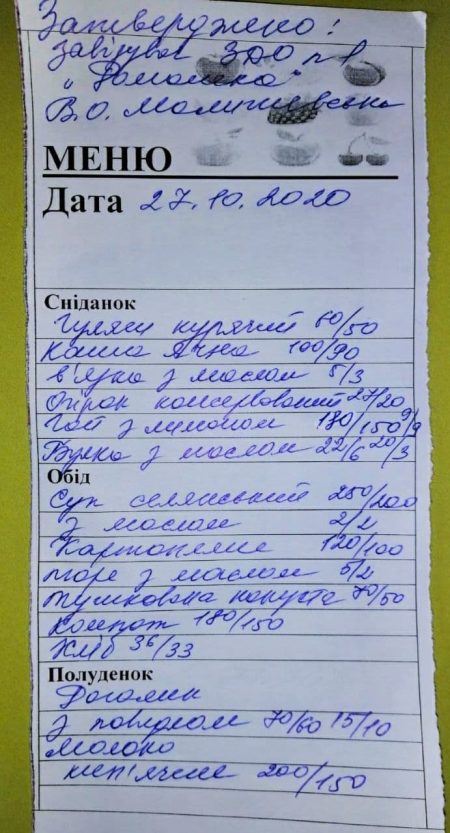 Затверджено:
завідувач ЗДО №8
"Ромашка"
В.О. Малишевська
МЕНЮ
Дата 27.10.2020
Сніданок
Гуляш курячий 60/50
Каша Ячна 100/90
в'язка з маслом 5/3
Огірок консервований 27/20
Чай з лимоном 180/150 9/9
Булка з маслом 22/6 20/3
Обід
Суп селянський 250/200
з маслом 2/2
Картопляне 120/100
пюре з маслом 5/2
тушкована капуста 70/50
Компот 180/150
Хліб 36/33
Полуденок
Рогалик
з повидлом 70/60 15/10
молоко
кип'ячене 200/150